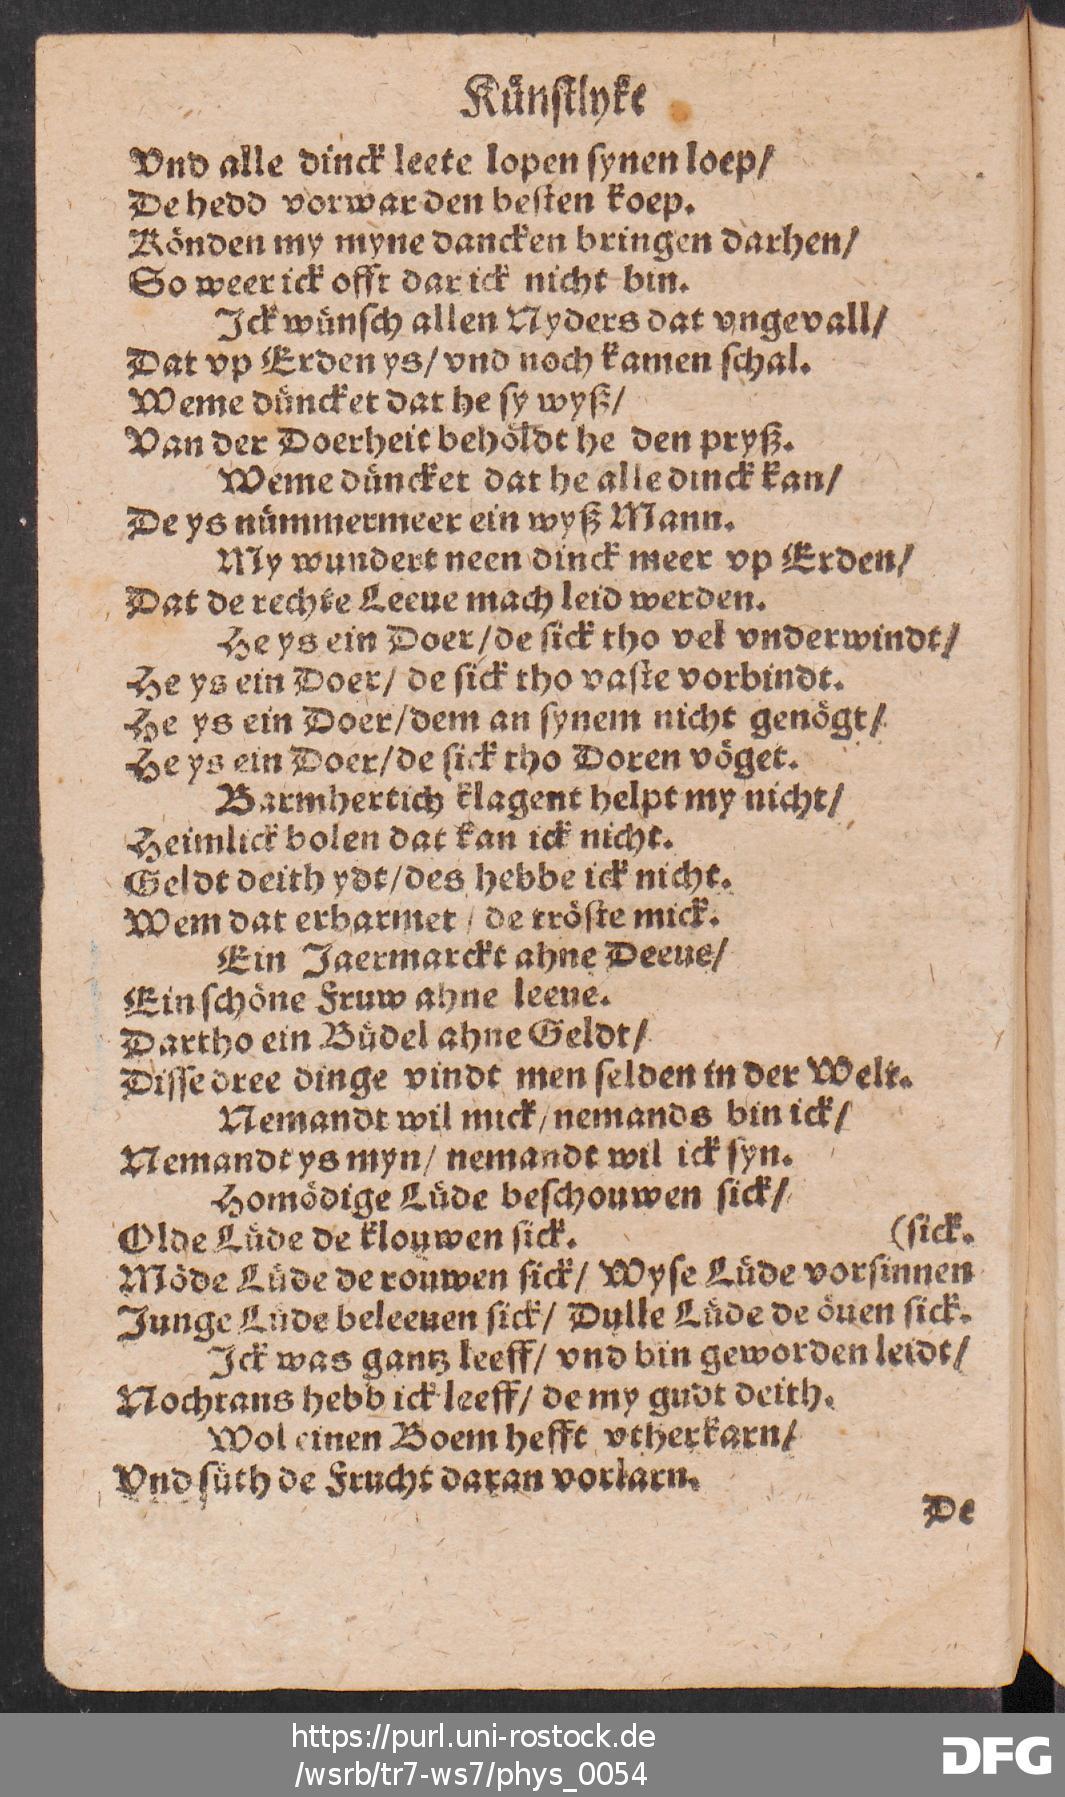 Künstlyke
Vnd alle dinck leete lopen synen loep/
De hedd vorwar den besten koep.
Könden my myne dancken bringen darhen/
So weer ick offt dar ick nicht bin.
Ick wünsch allen Nyders dat vngevall/
Dat vp Erden ys/ vnd noch kamen schal.
Weme düncket dat he sy wyß/
Van der Doerheit beholdt he den pryß.
Weme düncket dat he alle dinck kan/
De ys nümmermeer ein wyß Mann.
My wundert neen dinck meer vp Erden/
Dat de rechte Leeue mach leid werden.
He ys ein Doer/ de sick tho vel vnderwindt/
He ys ein Doer/ de sick tho vaste vorbindt.
He ys ein Doer/ dem an synem nicht genögt/
He ys ein Doer/ de sick tho Doren vöget.
Barmhertich klagent helpt my nicht/
Heimlick bolen dat kan ick nicht.
Geldt deith ydt/ des hebbe ick nicht.
Wem dat erbarmet / de tröste mick.
Ein Jaermarckt ahne Deeue/
Ein schöne Fruw ahne leeue.
Dartho ein Büdel ahne Geldt/
Disse dree dinge vindt men selden in der Welt.
Nemandt wil mick/ nemands bin ick/
Nemandt ys myn/ nemandt wil ick syn.
Homödige Lüde beschouwen sick/
Olde Lüde de klouwen sick. (sick.
Möde Lüde de rouwen sick/ Wyse Lüde vorsinnen
Junge Lüde beleeuen sick/ Dulle Lüde de öuen sick.
Ick was gantz leeff/ vnd bin geworden leidt/
Nochtans hebb ick leeff/ de my gudt deith.
Wol einen Boem hefft vtherkarn/
Vnd süth de Frucht daran vorlarn.
De
https://purl.uni-rostock.de
/wsrb/tr7-ws7/phys_0054
DFG